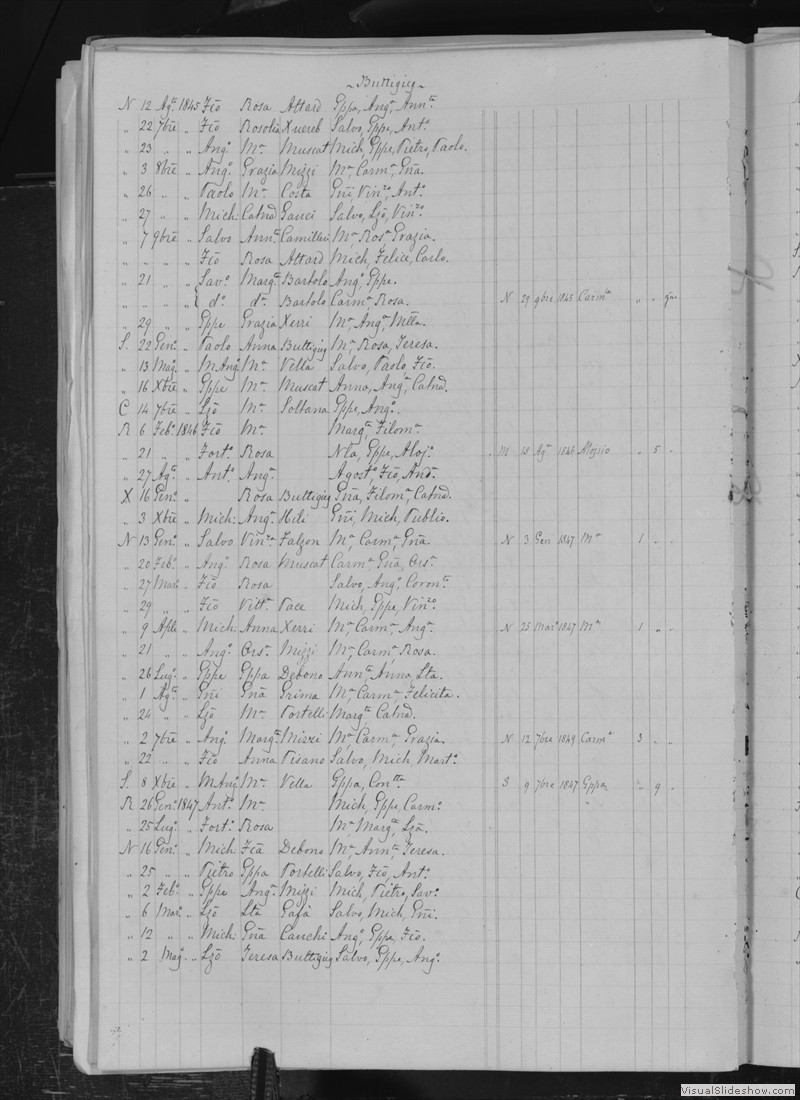 Buttigieg
N 12 Agto 1845 Fco Rosa Attard Gppa, Anga, Annta
" 22 7bre " Fco Rosolia Xuereb Salvo, Gppe, Anto
" 23 " " Ango Ma Muscat Mich, Gppe, Pietro, Paolo.
" 3 8bre " Ango Grazia Mizzi Ma, Carma, Gña.
" 26 " " Paolo Ma Costa Gñi, Vinzo, Anto
" 27 " " Mich: Catnd Gauci Salvo, Lzo, Vinzo
" 7 9bre " Salvo Annta Camilleri Ma, Rosa Grazia.
" " " " Fco Rosa Attard Mich, Felice, Carlo.
" 21 " " Savo Margta Bartolo Ango, Gppe.
" " " " do da Bartolo Carma Rosa. N 29 9bre 1845 Carma " "
" 29 " " Gppe Grazia Xerri Ma, Anga
S. 22 Geno " Paolo Anna Buttigieg Ma Rosa, Teresa.
" 13 Mago " M.Ango Ma Vella Salvo, Paolo, Fco.
" 16 Xbre " Gppe Ma Muscat Anna, Anga, Catnd.
C 14 7bre " Lzo Ma Soltana Gppe, Ango.
R 6 Febo 1846 Fco Ma Margta Filoma
" 21 " " Forto Rosa Nla, Gppe, Aloj. M 18 Agto 1846 Aloysio " 5 "
" 27 Agto " Anto Anga Agosto, Fco, And.
X 16 Geno " Rosa Buttigieg Gña, Filoma, Catnd.
" 3 Xbre " Mich: Anga Hili Gñi, Mich, Publio.
N 13 Geno " Salvo Vinza Falzon Ma, Carma, Gña. N 3 Gen 1847 Ma 1 " "
" 20 Febo " Ango Rosa Muscat Carma Gña, Orsa
" 27 Maro " Fco Rosa Salvo, Anga, Coronta
" 29 " " Fco Vitta Pace Mich, Gppe, Vinzo
" 9 Aple " Mich: Anna Xerri Ma, Carma, Anga. N 25 Maro 1847 Ma 1 " "
" 21 " " Ango Orsa Mizzi Ma, Carma, Rosa.
" 26 Lugo " Gppe Gppa Debono Annta, Anna, Lta.
" 1 Agto " Gñi Gña Grima Ma, Carma Felicita.
" 24 " " Lzo Ma Portelli Margta Catnd.
" 2 7bre " Ango Margta Mizzi Ma, Carma, Grazia. N 12 7bre 1849 Carma 3 " "
" 22 " " Fco Anna Pisano Salvo, Mich, Marto
S. 8 Xbre " M.Ango Ma Vella Gppa, Contta S 9 7bre 1847 Gppa " 9 "
R 26 Geno 1847 Anto Ma Mich, Gppe, Carmo
" 25 Lugo " Forto Rosa Ma, Margta, Lza.
N 16 Geno " Mich: Fca Debono Ma, Annta, Teresa.
" 25 " " Pietro Gppa Portelli Salvo, Fco, Anto
" 2 Febo " Gppe Anga Mizzi Mich, Pietro, Savo
" 6 Maro " Lzo Lta Gafà Salvo, Mich, Gñi.
" 12 " " Mich: Gña Cauchi Ango, Gppe, Fco.
" 2 Mago " Lzo Teresa Buttigieg Salvo, Gppe, Ango
VisualSlideshow.com